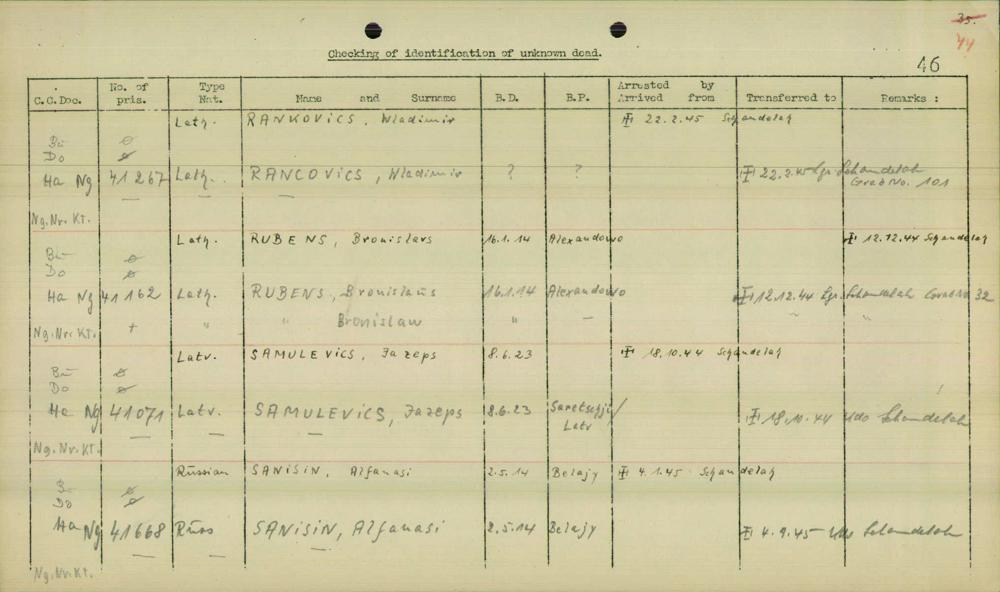 35.
44
46
Checking of identification of unknown dead.
C.C.Doc. No. of pris. Type Nat. Name and Surname B.D. B.P. Arrested by Arrived from Transferred to Remarks :
Latv. RANKOVICS, Wladimir 22.2.45 Schandelah
Bu ø
Do ø
Ha Ng 41267 Latv. RANCOVICS, Wladimir ? ? 22.2.45 Lgr. Schandelah
Grab No. 101
Ng.Nr.Kt.
Latv. RUBENS, Bronislavs 16.1.14 Alexandowo 12.12.44 Schandelah
Bu ø
Do ø
Ha Ng 41162 Latv. RUBENS, Bronislavs 16.1.14 Alexandowo 12.12.44 Lgr. Schandelah Grab No. 32
Ng.Nr.Kt. + " " Bronislaw " —
Latv. SAMULEVICS, Jazeps 8.6.23 18.10.44 Schandelah
Bu ø
Do ø
Ha Ng 41071 Latv. SAMULEVICS, Jazeps 8.6.23 18.10.44 Schandelah
Latv
Ng.Nr.Kt.
Russian SANiSiN, Alfanasi 2.5.14 Belajy 4.1.45 Schandelah
Do ø
Ha Ng 41668 Russ SANiSiN, Alfanasi 2.5.14 Belajy Schandelah
Ng.Nr.Kt.